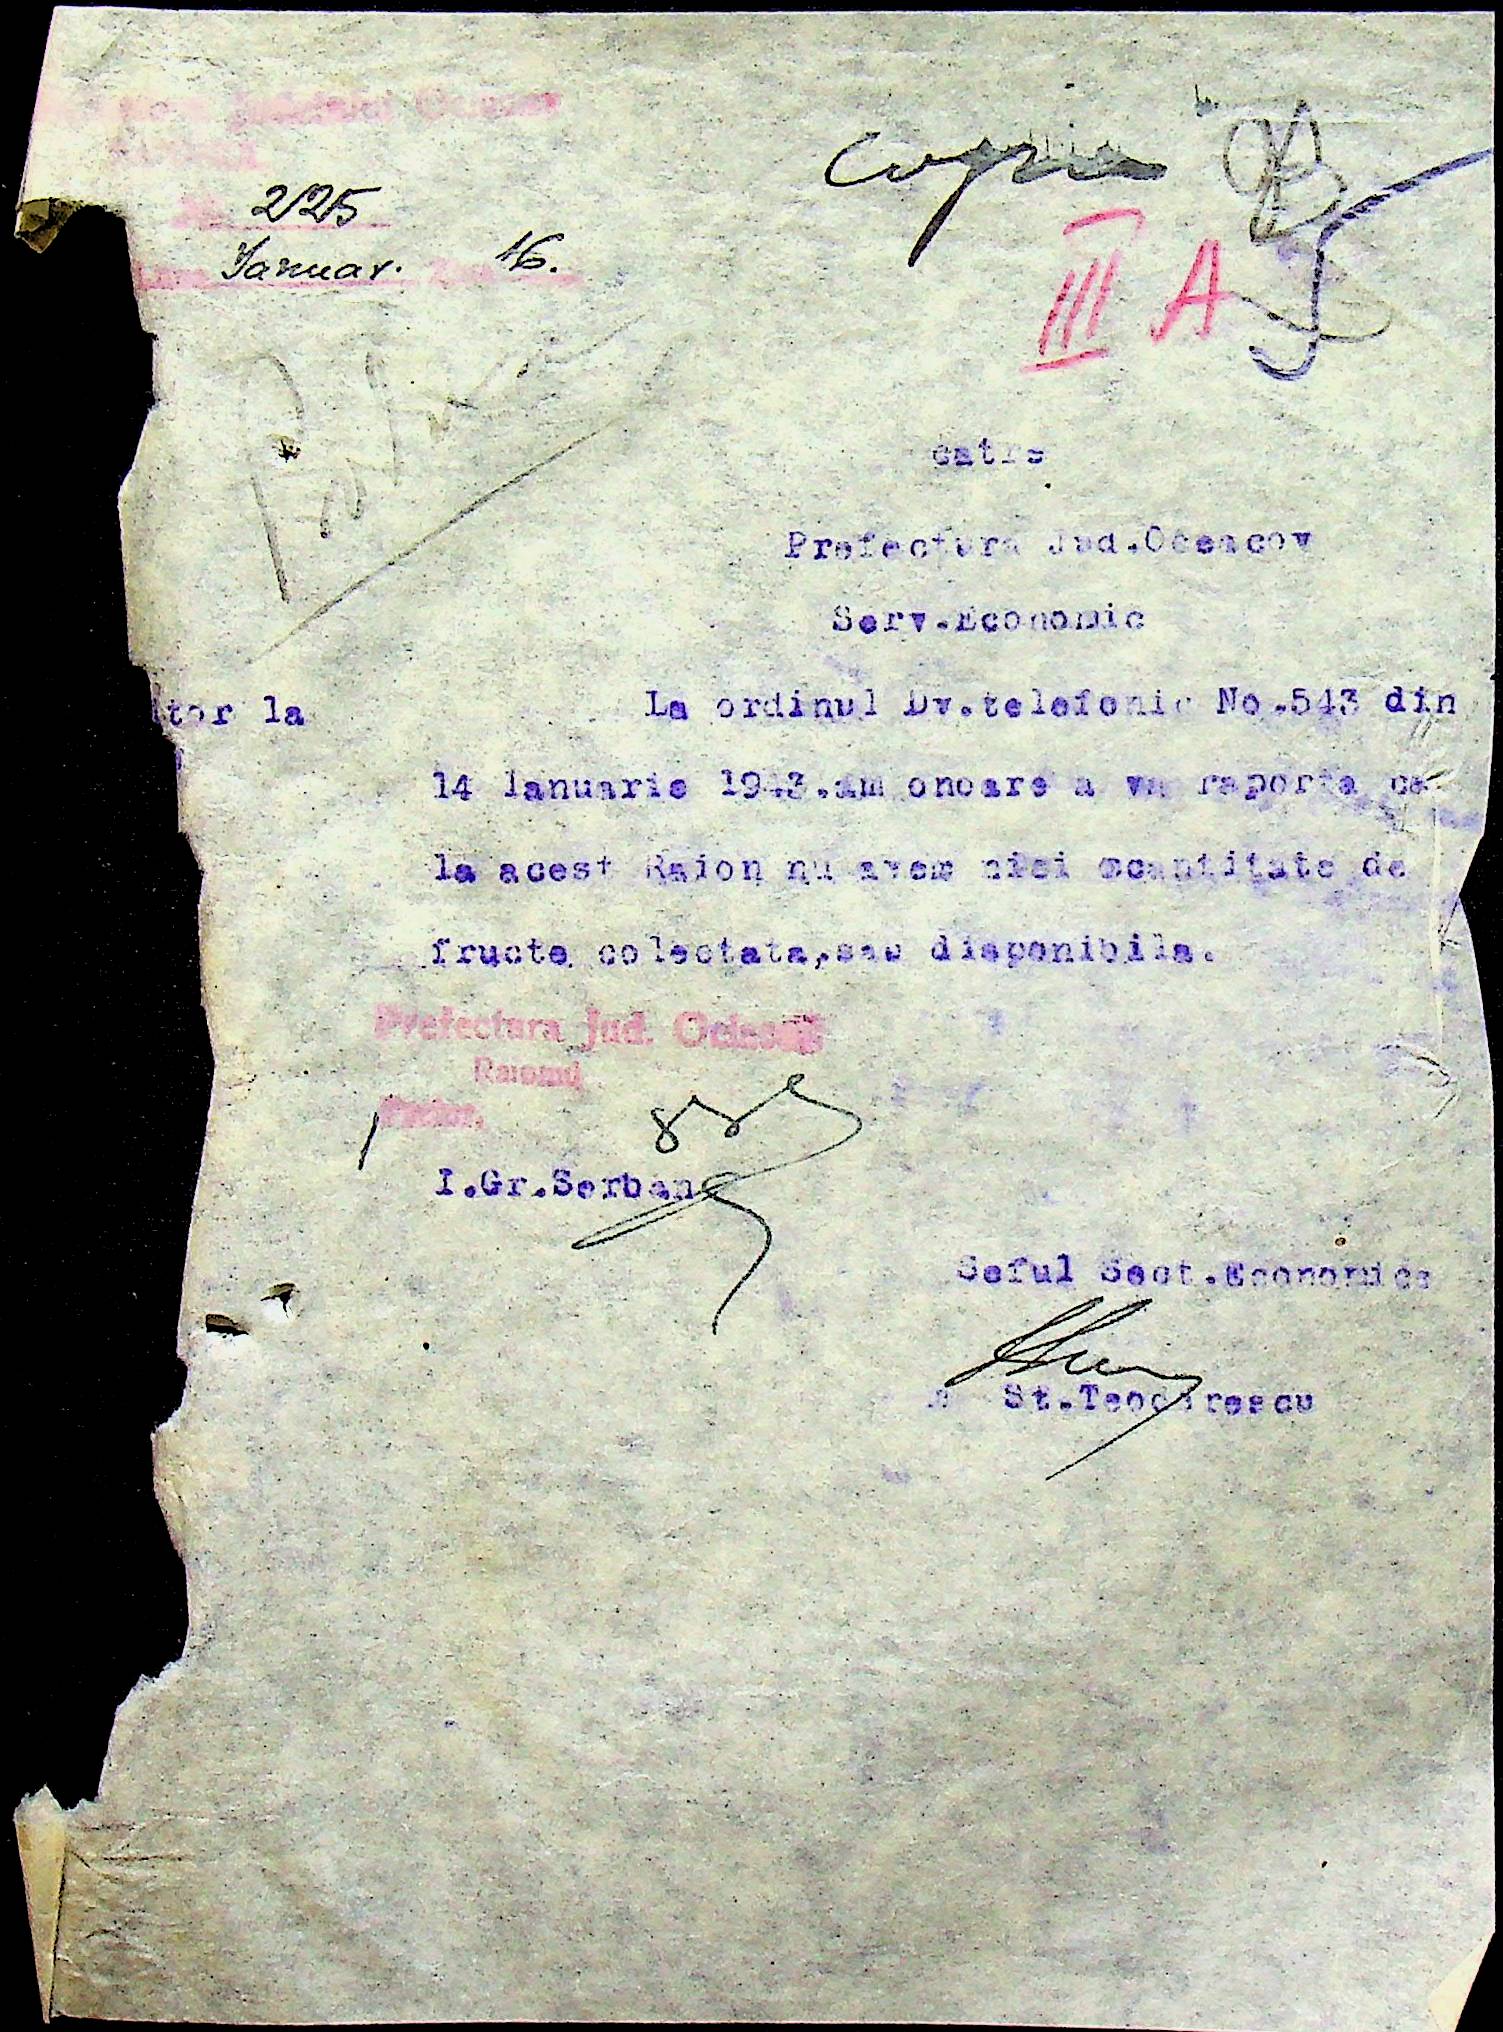 Judetului
225
Januar. 16.
copie
III A
catre
Prefectura Jud.Oceacov
Serv.Economic
tor la
La ordinul Dv.telefonic No.543 din
14 Ianuarie 1943.am onoare a va raporta ca
la acest Raion nu avem nici ocantitate de
fructe colectata,sau disponibila.
Prefectura Jud. Oceacov
Raionul
Pretor,
I.Gr.Serban
Seful Sect.Economica
St.Teodorescu